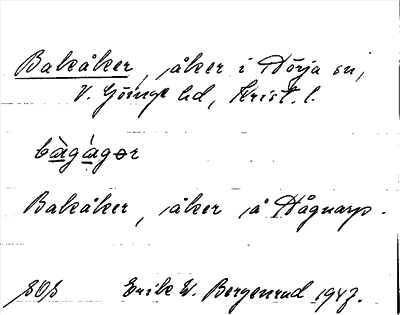 Bakåker, åker i Dörja sn,
V. Göinge hd, Krist. l.
bàgàgər
Bakåker, åker å Hågnarp.
SOS Erik W. Bergenrud 1947.